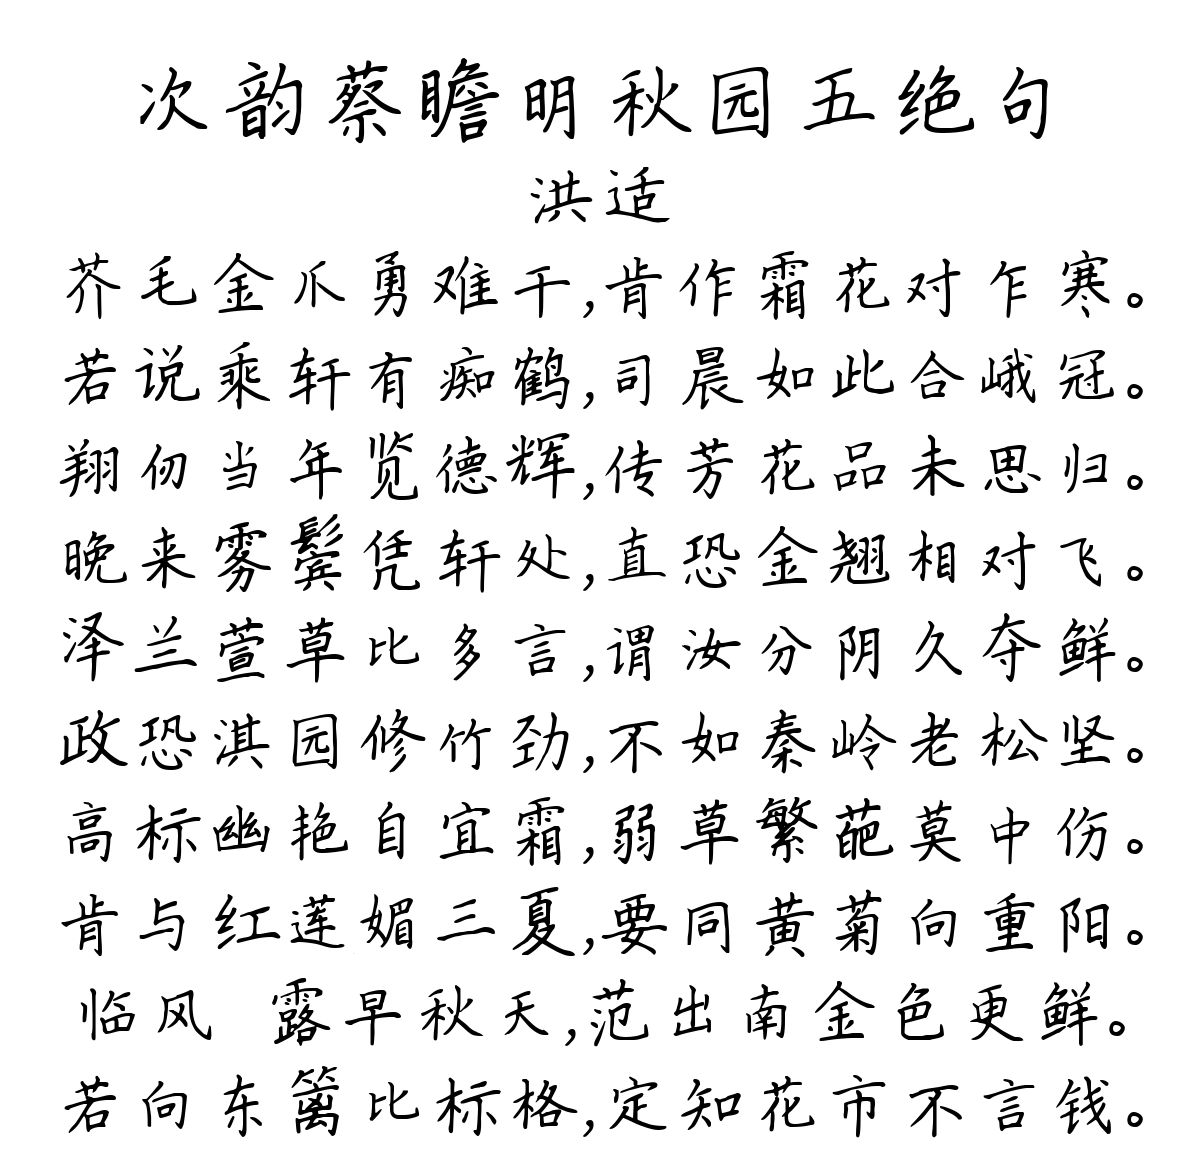 次韵蔡瞻明秋园五绝句
洪适
芥毛金爪勇难干,肯作霜花对乍寒。
若说乘轩有痴鹤,司晨如此合峨冠。
翔仞当年览德辉,传芳花品未思归。
晚来雾鬓凭轩处,直恐金翘相对飞。
泽兰萱草比多言,谓汝分阴久夺鲜。
政恐淇园修竹劲,不如秦岭老松坚。
高标幽艳自宜霜,弱草繁葩莫中伤。
肯与红莲媚三夏,要同黄菊向重阳。
临风 露早秋天,范出南金色更鲜。
若向东篱比标格,定知花市不言钱。